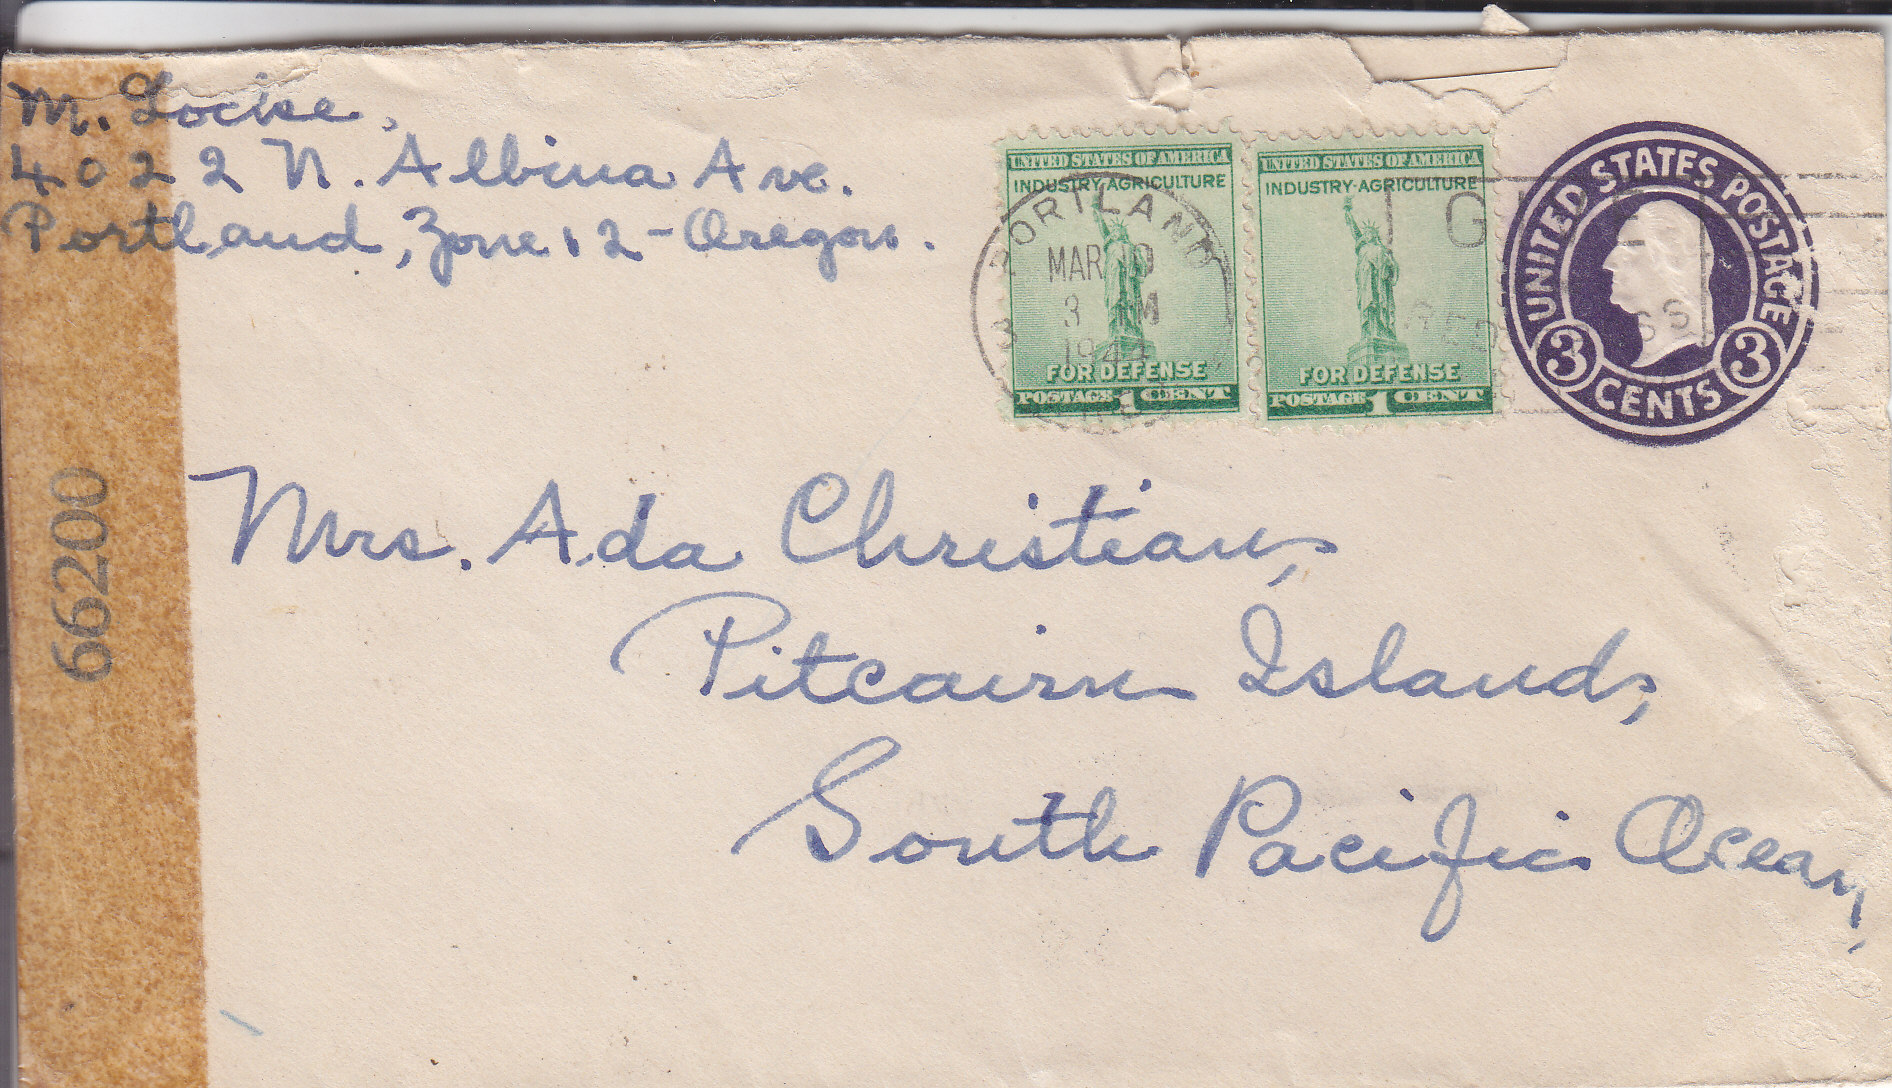 M. Locke,
4022 N. Albina Ave.
Portland, Zone 12 - Oregon.
UNITED STATES OF AMERICA
INDUSTRY·AGRICULTURE
FOR DEFENSE
POSTAGE 1 CENT
UNITED STATES OF AMERICA
INDUSTRY·AGRICULTURE
FOR DEFENSE
POSTAGE 1 CENT
PORTLAND
MAR
3 M
194
G
RED
SS
UNITED STATES POSTAGE
3 CENTS 3
66200
Mrs. Ada Christian,
Pitcairn Island,
South Pacific Ocean,